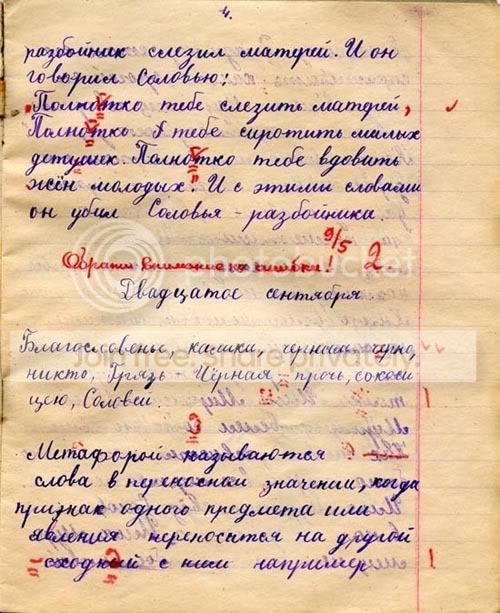 4.
разбойник слезил матерей. И он
говорил Соловью:
„Полнотко тебе слезить матерей,
Полнотко тебе сиротить милых
детушек. Полнотко тебе вдовить
жён молодых." И с этими словами
он убил Соловья-разбойника.
9/5 2
Обрати внимание на ошибки!
Двадцатое сентября.
Благословенье, камка, черным черно,
никто, Грязь Чёрная - прочь, сокоси
цею, Соловей
Метафорой называются
слова в переносном значении, когда
признак одного предмета или
явления переносится на другой
сходный с ним например